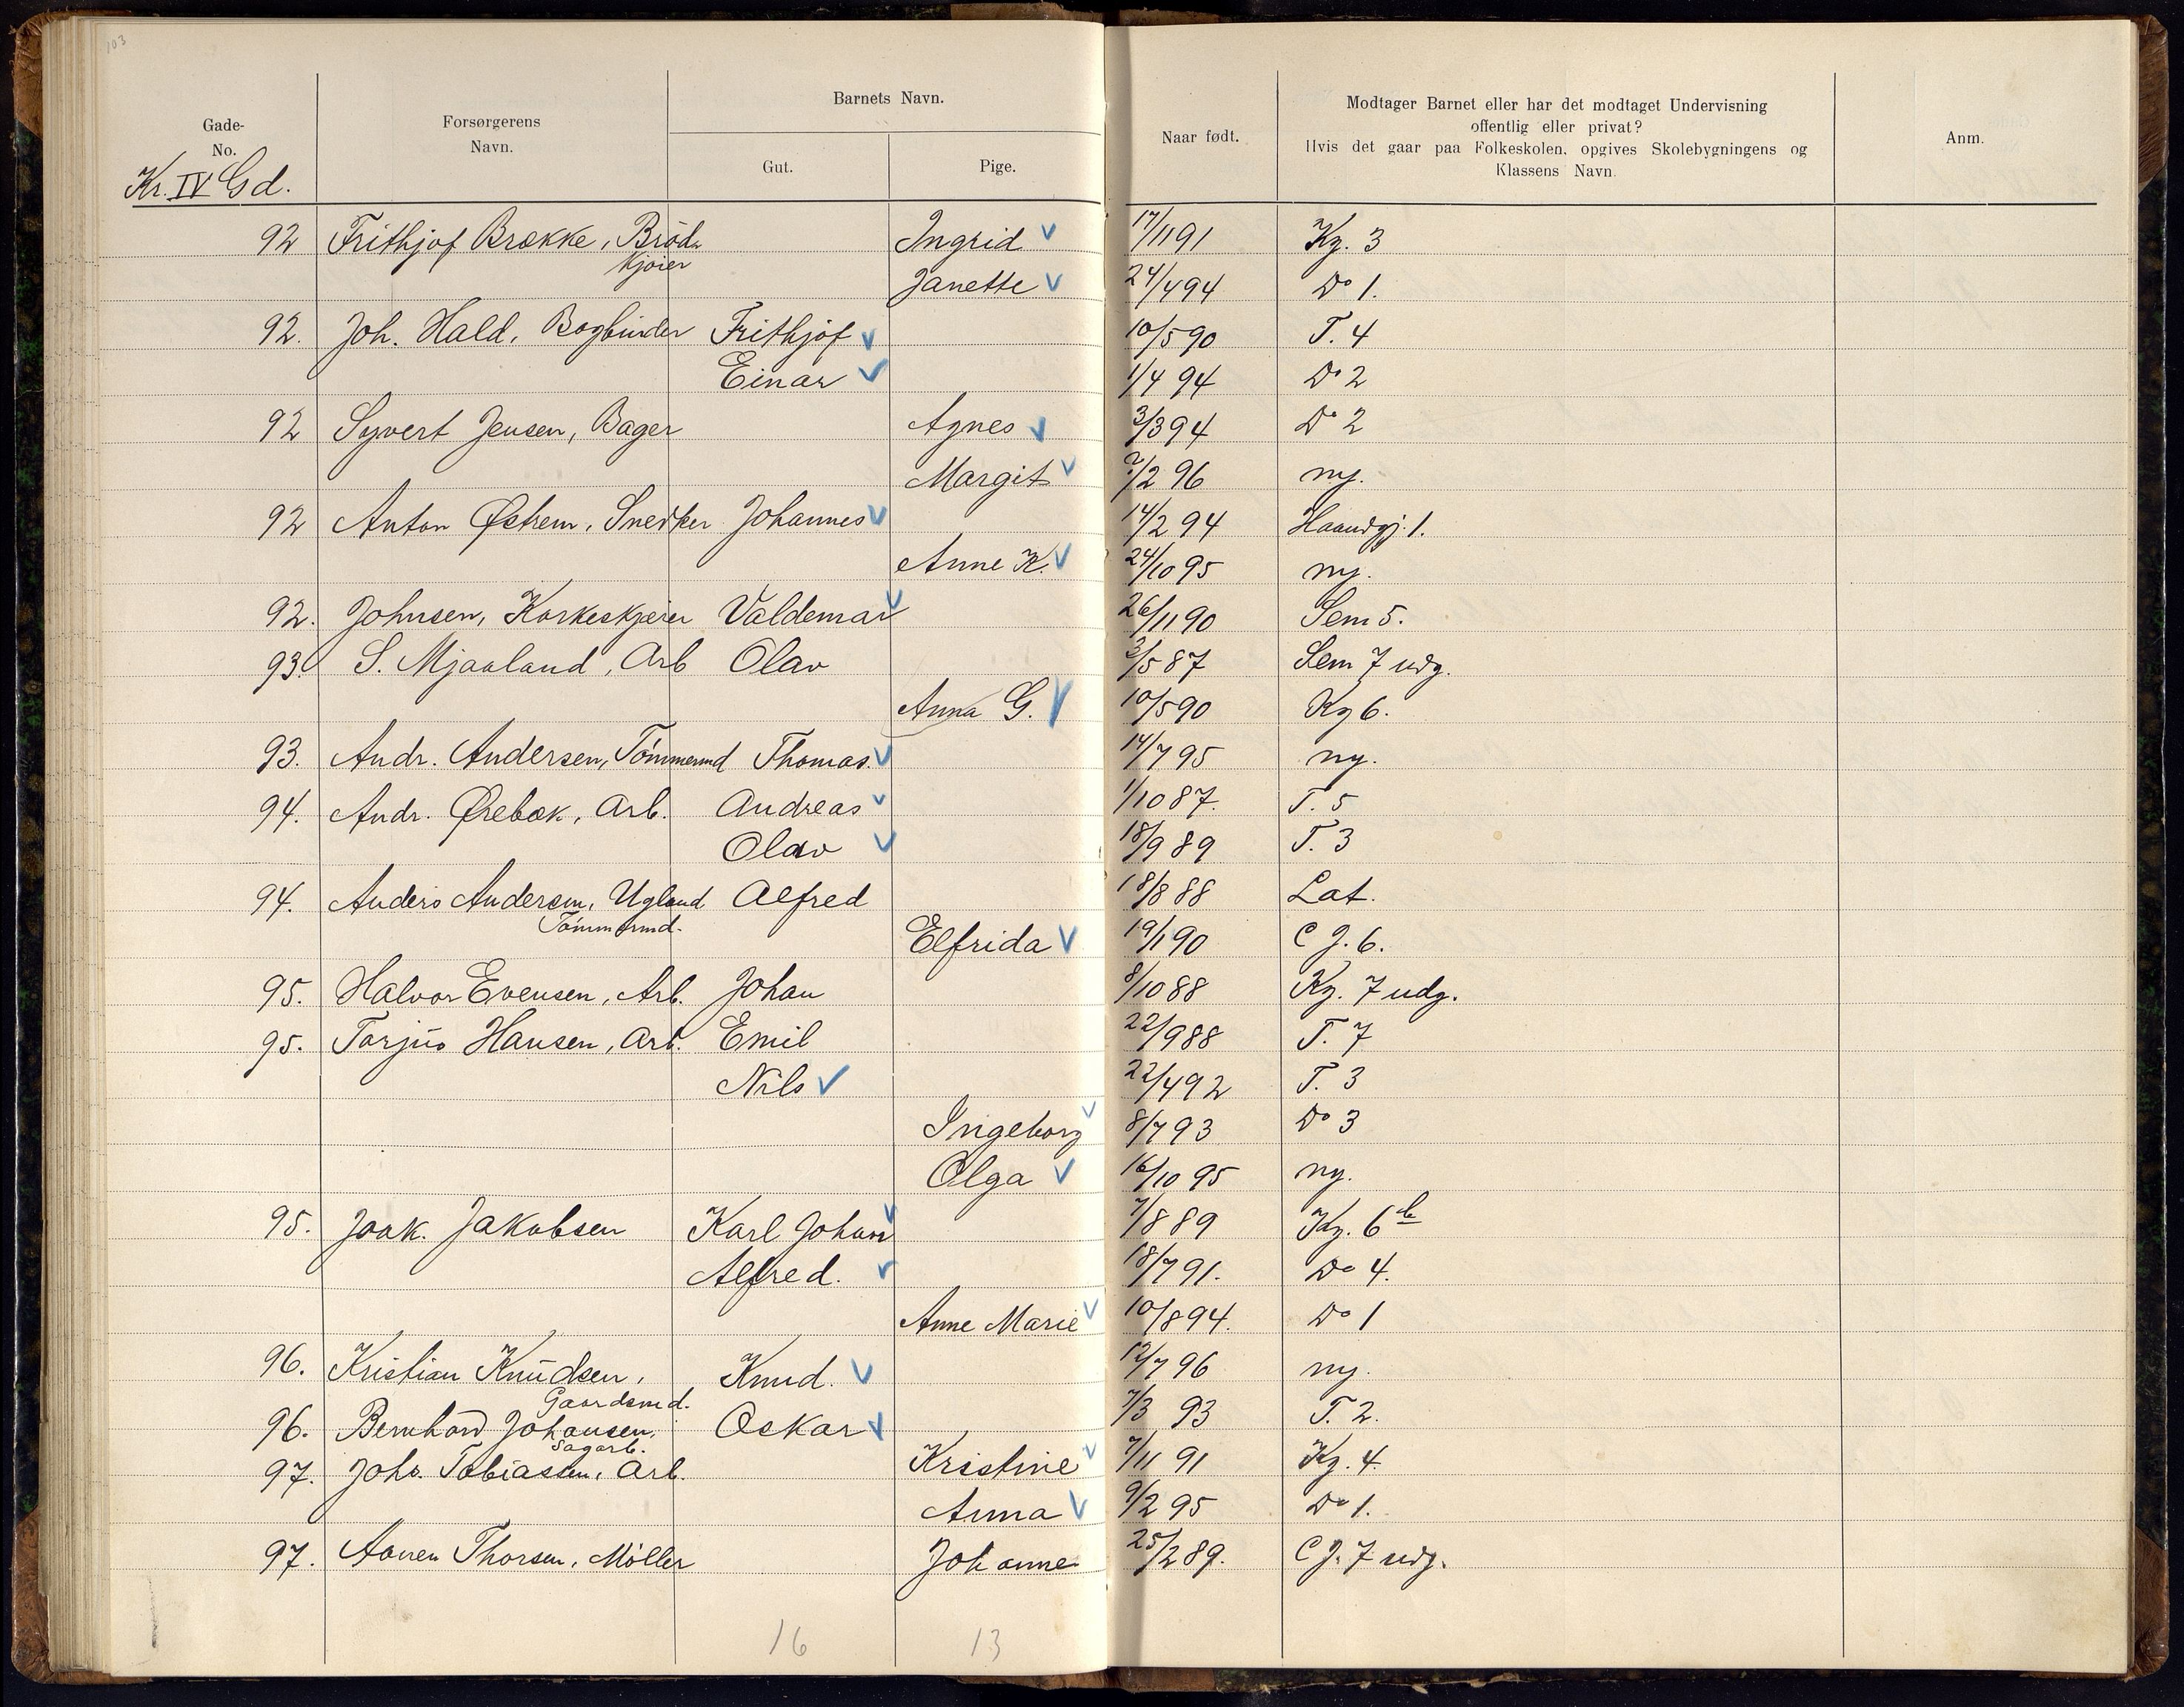 103
Gade-
No.
Forsørgerens
Navn.
Barnets Navn.
Gut.
Pige.
Naar født.
Modtager Barnet eller har det modtaget Undervisning
offentlig eller privat?
Hvis det gaar paa Folkeskolen, opgives Skolebygningens og
Klassens Navn.
Anm.
Kr. IV Gd.
92 Frithjof Brække, Bröd- Ingrid 17/11 91 Kg. 3
kjører
Janette 24/4 94 Do 1.
92. Joh. Hald, Bogbinder Frithjof 10/5 90 T. 4
Einar 1/4 94 Do 2
92 Syvert Jensen, Bager Agnes 3/3 94 Do 2
Margit 7/2 96 ny.
92 Anton Østrem, Snedker Johannes 14/2 94 Haandgj. 1.
Anne K. 24/10 95 ny.
92. Johnsen, Korkeskjærer Valdemar 26/11 90 Sem 5.
93. S. Mjaaland, Arb Olav 3/5 87 Sem 7 udg.
Anna G. 10/5 90 Kg 6.
93. Andr. Andersen, Tömmermd Thomas. 14/7 95 ny.
94. Andr. Ørebæk, Arb. Andreas 1/10 87. T. 5
Olav 18/9 89 T. 3
94. Anders Andersen, Ugland Alfred 18/8 88 Lat.
Tömmermd.
Elfrida 19/1 90 C J. 6.
95. Halvor Evensen, Arb. Johan 8/10 88 Kg. 7 udg.
95. Torjús Hansen, Arb. Emil 22/9 88 T. 7
Nils 22/4 92 T. 3
Ingeborg 8/7 93 Do 3
Olga 16/10 95 ny.
95. Joak. Jakobsen Karl Johan 7/8 89 Kg. 6 b
Alfred. 18/7 91. Do 4.
Anne Marie 10/8 94. Do 1
96. Kristian Knúdsen, Knud. 12/7 96 ny.
Gaardsmd.
96. Bernhard Johansen, Oskar 7/3 93 T. 2.
Sagarb.
97. Johs. Tobiassen, Arb. Kristine 7/11 91 Kg. 4.
Anna 9/2 95 Do 1.
97. Aanen Thorsen, Möller Johanne 25/2 89. C J. 7 udg.
16 13